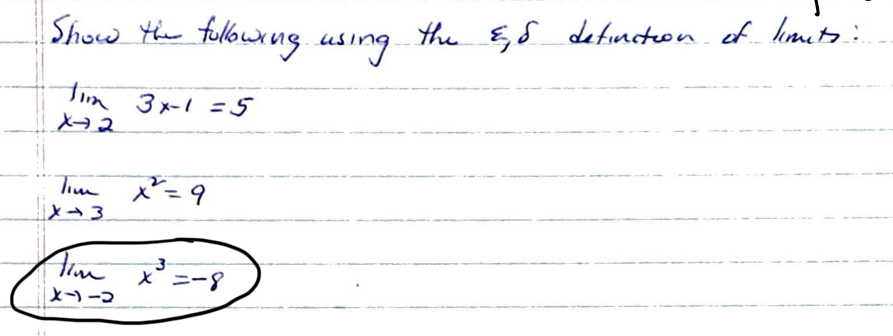 Show the following using the ε,δ definition of limits:
lim x→2 3x-1 = 5
lim x→3 x² = 9
lim x→-2 x³ = -8